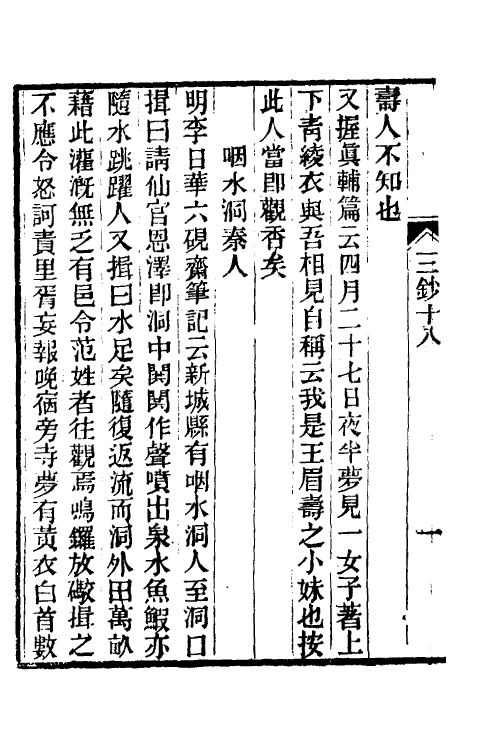 三鈔十八
一
壽人不知也
又握眞輔篇云四月二十七日夜半夢見一女子著上
下靑綾衣與吾相見自稱云我是王眉壽之小妹也按
此人當卽觀香矣
咽水洞秦人
明李日華六硯齋筆記云新城縣有咽水洞人至洞口
揖曰請仙官恩澤卽洞中閧閧作聲噴出泉水魚鰕亦
隨水跳躍人又揖曰水足矣隨復返流而洞外田萬畝
藉此灌漑無乏有邑令范姓者往觀焉鳴鑼放礮揖之
不應令怒訶責里胥妄報晚宿旁寺夢有黃衣白首數